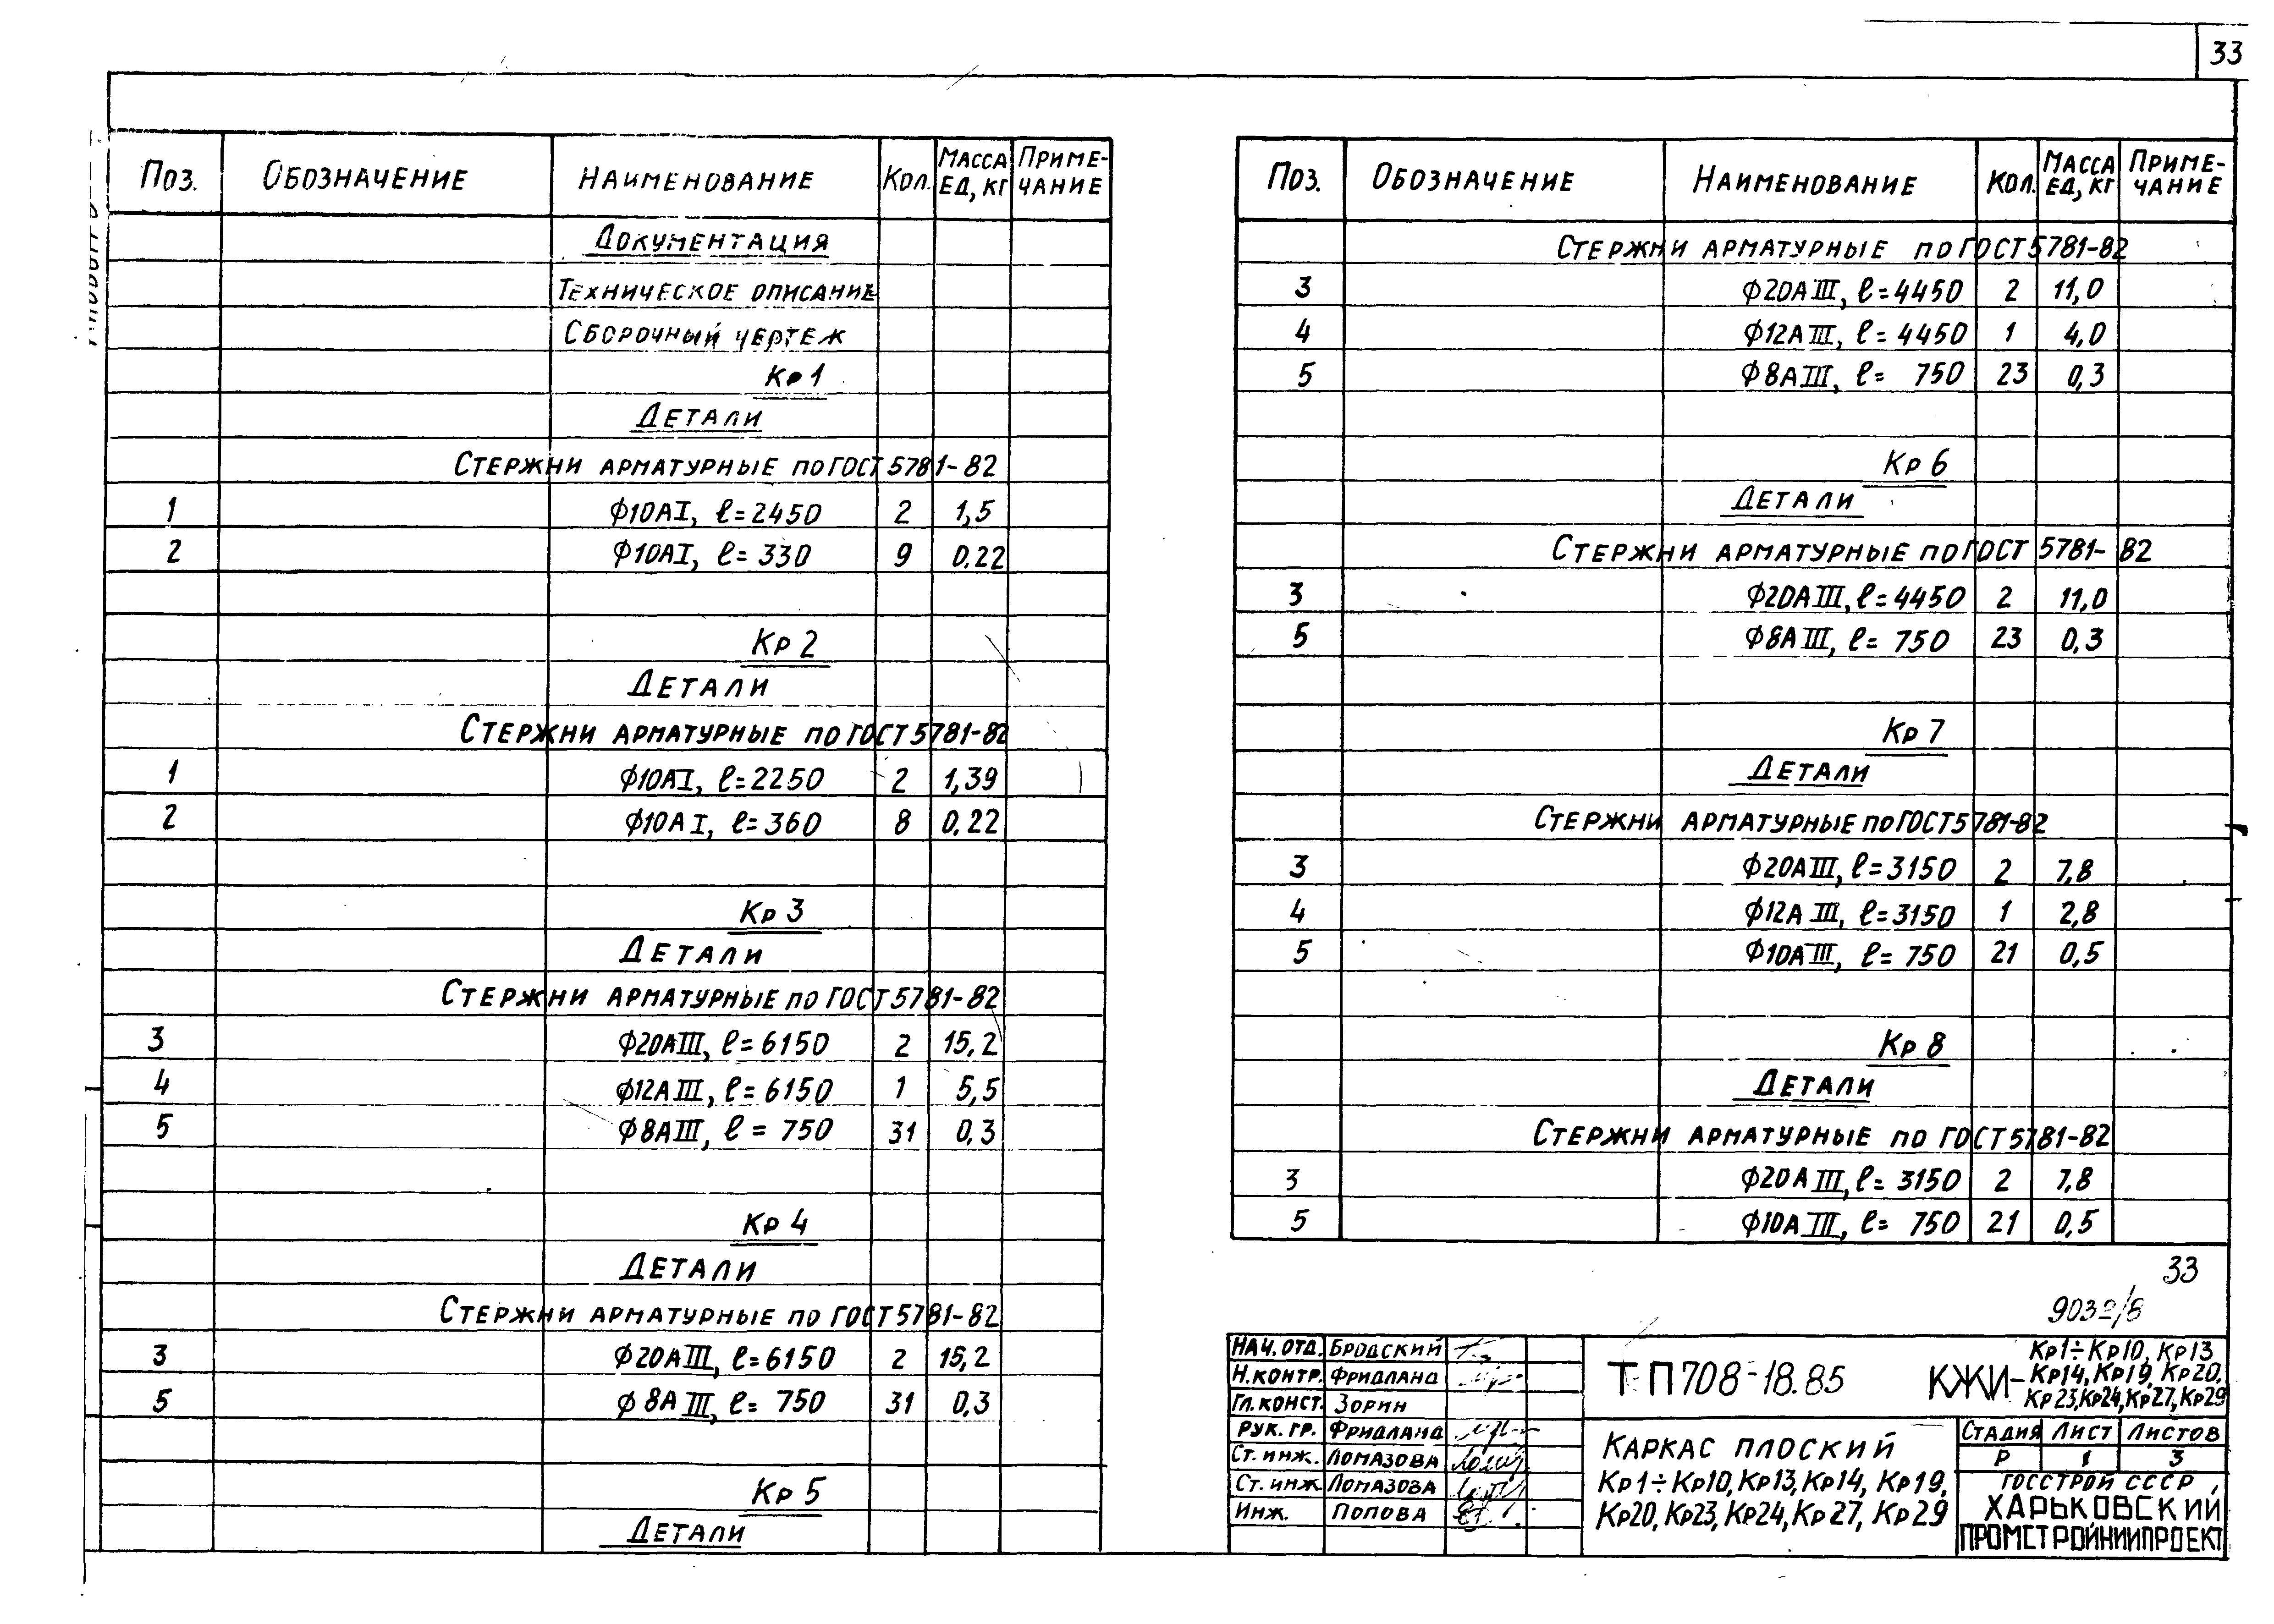 33
Поз. Обозначение Наименование Кол. Масса ед, кг Приме-чание
Документация
Техническое описание
Сборочный чертеж
Кр 1
Детали
Стержни арматурные по ГОСТ 5781-82
1 Ф10АI, ℓ=2450 2 1,5
2 Ф10АI, ℓ=330 9 0,22
Кр 2
Детали
Стержни арматурные по ГОСТ 5781-82
1 Ф10АI, ℓ=2250 2 1,39
2 Ф10АI, ℓ=360 8 0,22
Кр 3
Детали
Стержни арматурные по ГОСТ 5781-82
3 Ф20АIII, ℓ=6150 2 15,2
4 Ф12АIII, ℓ=6150 1 5,5
5 Ф8АIII, ℓ=750 31 0,3
Кр 4
Детали
Стержни арматурные по ГОСТ 5781-82
3 Ф20АIII, ℓ=6150 2 15,2
5 Ф8АIII, ℓ=750 31 0,3
Кр 5
Детали
Поз. Обозначение Наименование Кол. Масса ед, кг Приме-чание
Стержни арматурные по ГОСТ 5781-82
3 Ф20АIII, ℓ=4450 2 11,0
4 Ф12АIII, ℓ=4450 1 4,0
5 Ф8АIII, ℓ=750 23 0,3
Кр 6
Детали
Стержни арматурные по ГОСТ 5781-82
3 Ф20АIII, ℓ=4450 2 11,0
5 Ф8АIII, ℓ=750 23 0,3
Кр 7
Детали
Стержни арматурные по ГОСТ 5781-82
3 Ф20АIII, ℓ=3150 2 7,8
4 Ф12АIII, ℓ=3150 1 2,8
5 Ф10АIII, ℓ=750 21 0,5
Кр 8
Детали
Стержни арматурные по ГОСТ 5781-82
3 Ф20АIII, ℓ=3150 2 7,8
5 Ф10АIII, ℓ=750 21 0,5
33
Нач. отд. Бродский
Н.контр. Фридлана
Гл. конст. Зорин
Рук. гр. Фридлана
Ст. инж. Ломазова
Ст. инж Ломазова
Инж. Попова
ТП 708-18.85
КЖИ-
Кр1÷Кр10, Кр13
Кр14, Кр19, Кр20,
Кр23, Кр24, Кр27, Кр29
Каркас плоский
Кр1÷Кр10, Кр13, Кр14, Кр19,
Кр20, Кр23, Кр24, Кр27, Кр29
Стадия Лист Листов
Р 1 3
Госстрой СССР
Харьковский
Промстройниипроект